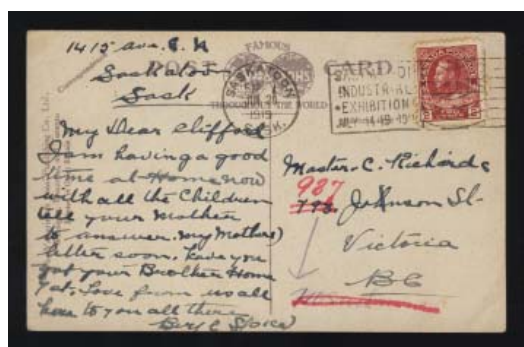 1415 ave.
Saskatoon
Sask
FAMOUS
POST CARD
THROUGHOUT THE WORLD
SASKATOON
1919
SASK.
INDUSTRIAL
EXHIBITION
JULY 14-19-19
My Dear Clifford
I am having a good
time at Home now
with all the Children
tell your Mother
to answer my Mothers
letter soon. have you
got your Brother Home
yet. Love from us all
here to you all there
Master. C. Richards
937
Johnson St-
Victoria
BC